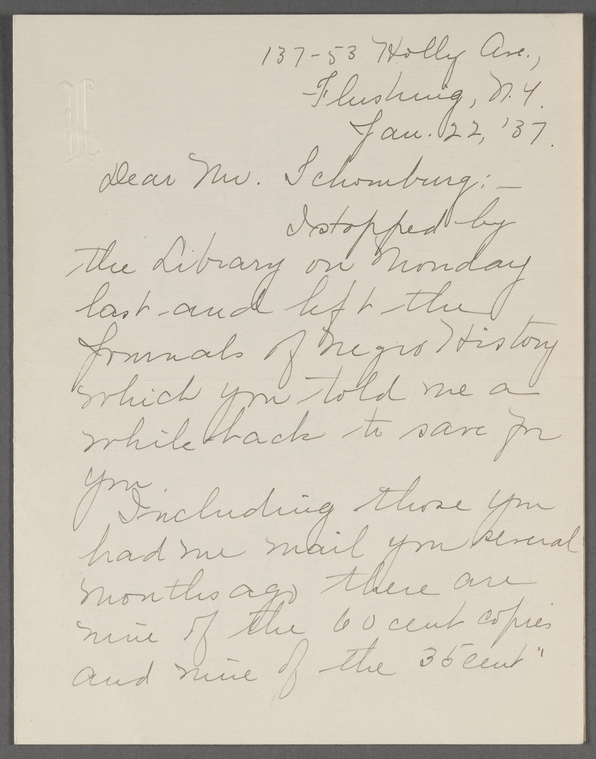 137-53 Holly Ave.,
Flushing, N.Y.
Jan. 22, '37.
Dear Mr. Schomburg:—
I stopped by
the Library on Monday
last and left the
Journals of Negro History
which you told me a
while back to save for
you.
Including those you
had me mail you several
months ago there are
nine of the 60 cent copies
and nine of the 35 cent "